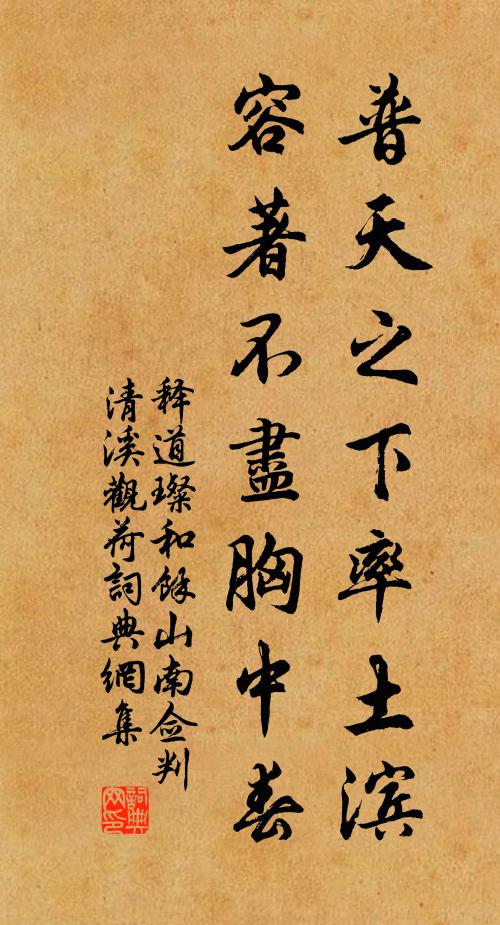 普天之下率土滨
容著不盡胸中春
释道璨和馀山南佥判
清溪觀荷詞典網集
詞典网印